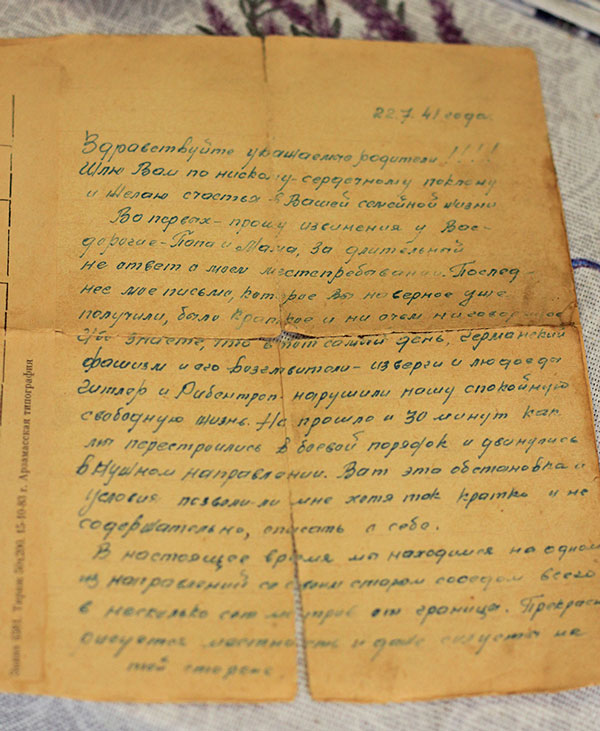 22.7.41 года.
Здравствуйте уважаемые родители!!!!
Шлю Вам по нискому-сердечному поклону
и желаю счастья в Вашей семейной жизни
Во первых-прошу извинения у Вас-
дорогие-Папа и Мама, за длительный
не ответ о моем местопребывании. Послед-
нее мое письмо, которое вы наверное уже
получили, было краткое и ни о чем
Вы знаете, что в тот самый день, германский
фашизм и его возглавители-изверги и людоеды
Гитлер и Рибентроп нарушили нашу спокойную
свободную жизнь. Не прошло и 30 минут как
мы перестроились в боевой порядок и двинулись
в нужном направлении. Вот эта обстановка и
условия позволили мне хотя так кратко и не
содержательно, описать о себе.
В настоящее время мы находимся на одном
из направлений со своим старым соседом всего
в несколько сот метров от границы. Прекрасно
местность и даже силуэты на
той стороне.
Заказ 6361. Тираж 50х200. 15-10-83 г. Арзамасская типография